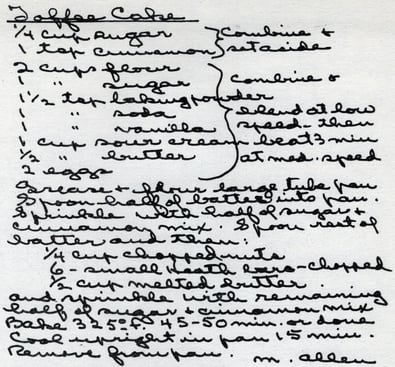 Toffee Cake
1/4 cup sugar } combine &
1 tsp cinnamon } set aside
2 cups flour
1 " sugar } combine &
1 1/2 tsp baking powder
1 " soda } blend at low
1 " vanilla speed - then
1 cup sour cream beat 3 min
1/2 " butter at med. speed
2 eggs
Grease & flour large tube pan
Spoon half of batter into pan.
Sprinkle with half of sugar &
cinnamon mix. Spoon rest of
batter and then:
1/4 cup chopped nuts
6 - small Heath bars - chopped
1/2 cup melted butter
and sprinkle with remaining
half of sugar & cinnamon mix
Bake 325° F. 45-50 min. or done
Cool upright in pan 15 min.
Remove from pan. M. Allen